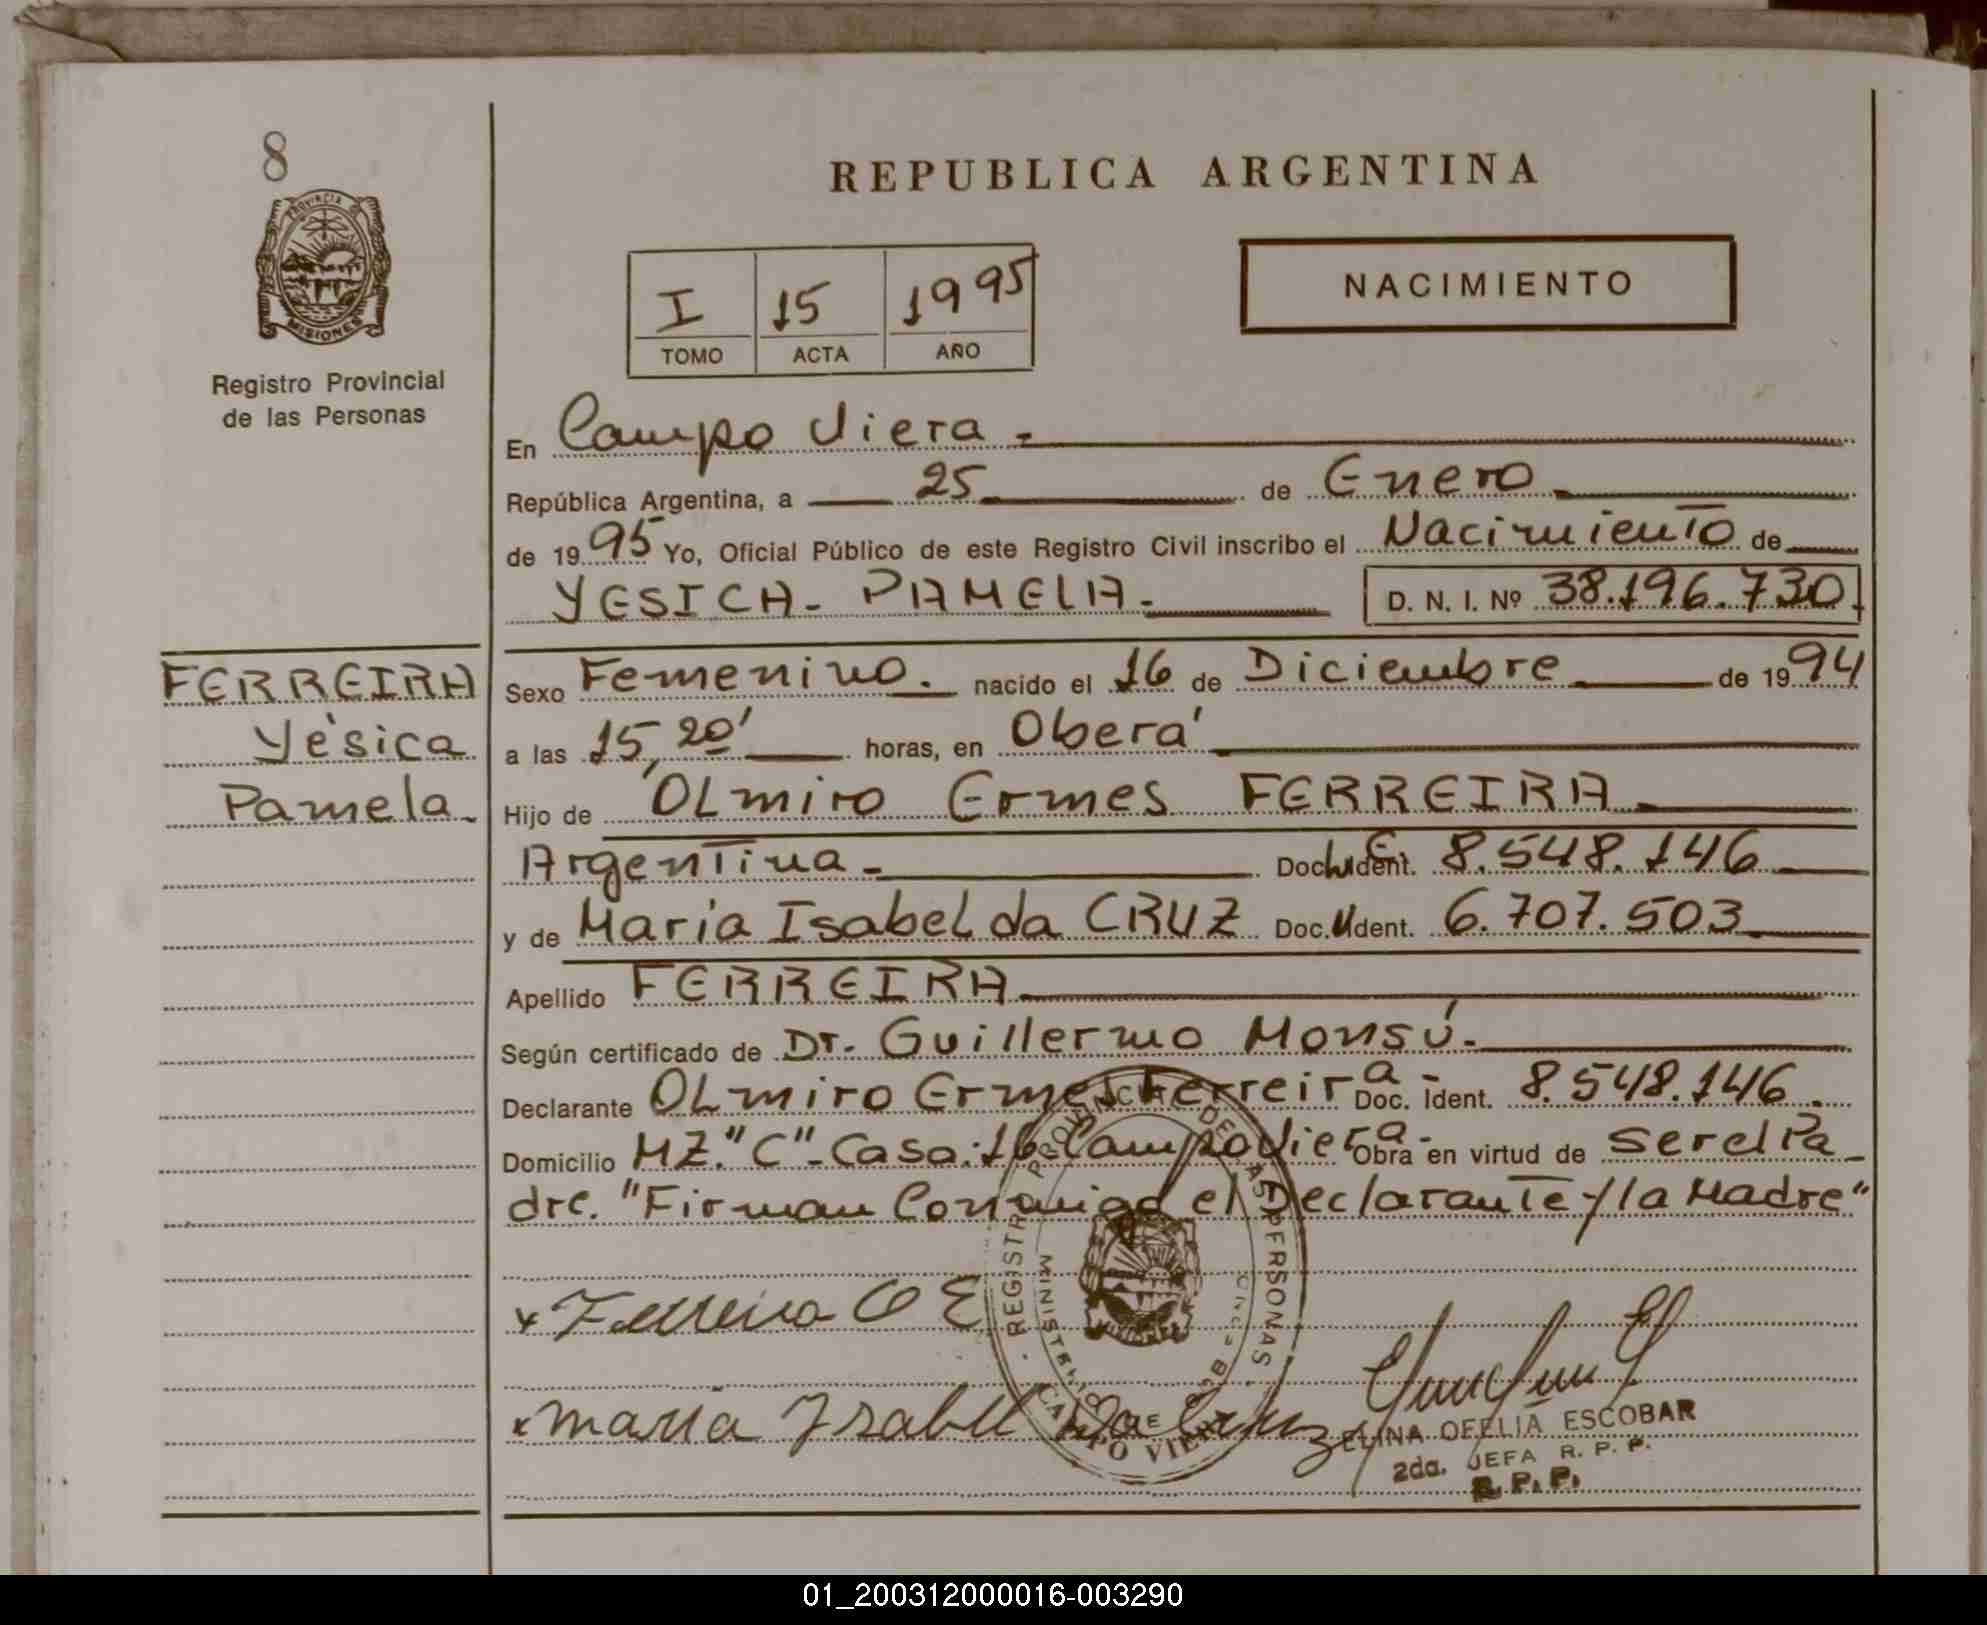 8
REPUBLICA ARGENTINA
PROVINCIA DE
MISIONES
Registro Provincial
de las Personas
I 15 1995
TOMO ACTA AÑO
NACIMIENTO
En Campo Viera.
República Argentina, a 25 de Enero.
de 1995 Yo, Oficial Público de este Registro Civil inscribo el Nacimiento de
YESICA - PAMELA.- D. N. I. Nº 38.196.730.
FERREIRA
Yésica
Pamela.
Sexo Femenino. nacido el 16 de Diciembre de 1994
a las 15,20' horas, en Oberá
Hijo de OLmiro Ermes FERREIRA.
Argentina. Doc. Ident. L.E. 8.548.146
y de María IsabeL da CRUZ Doc. Ident. 6.707.503
Apellido FERREIRA
Según certificado de Dr. Guillermo Monsú.
Declarante OLmiro Ermes Ferreira - Doc. Ident. 8.548.146.
Domicilio MZ."C"- Casa: 16- Campo Viera - Obra en virtud de ser el Pa
dre. "Firman Conmigo el Declarante y la Madre"
REGISTRO PROVINCIAL DE LAS PERSONAS
MISIONES
CAMPO VIERA
x Ferreira O E
x maria Isabel Da Cruz
ELINA OFELIA ESCOBAR
2da. JEFA R. P. P.
R. P. P.
01_200312000016-003290